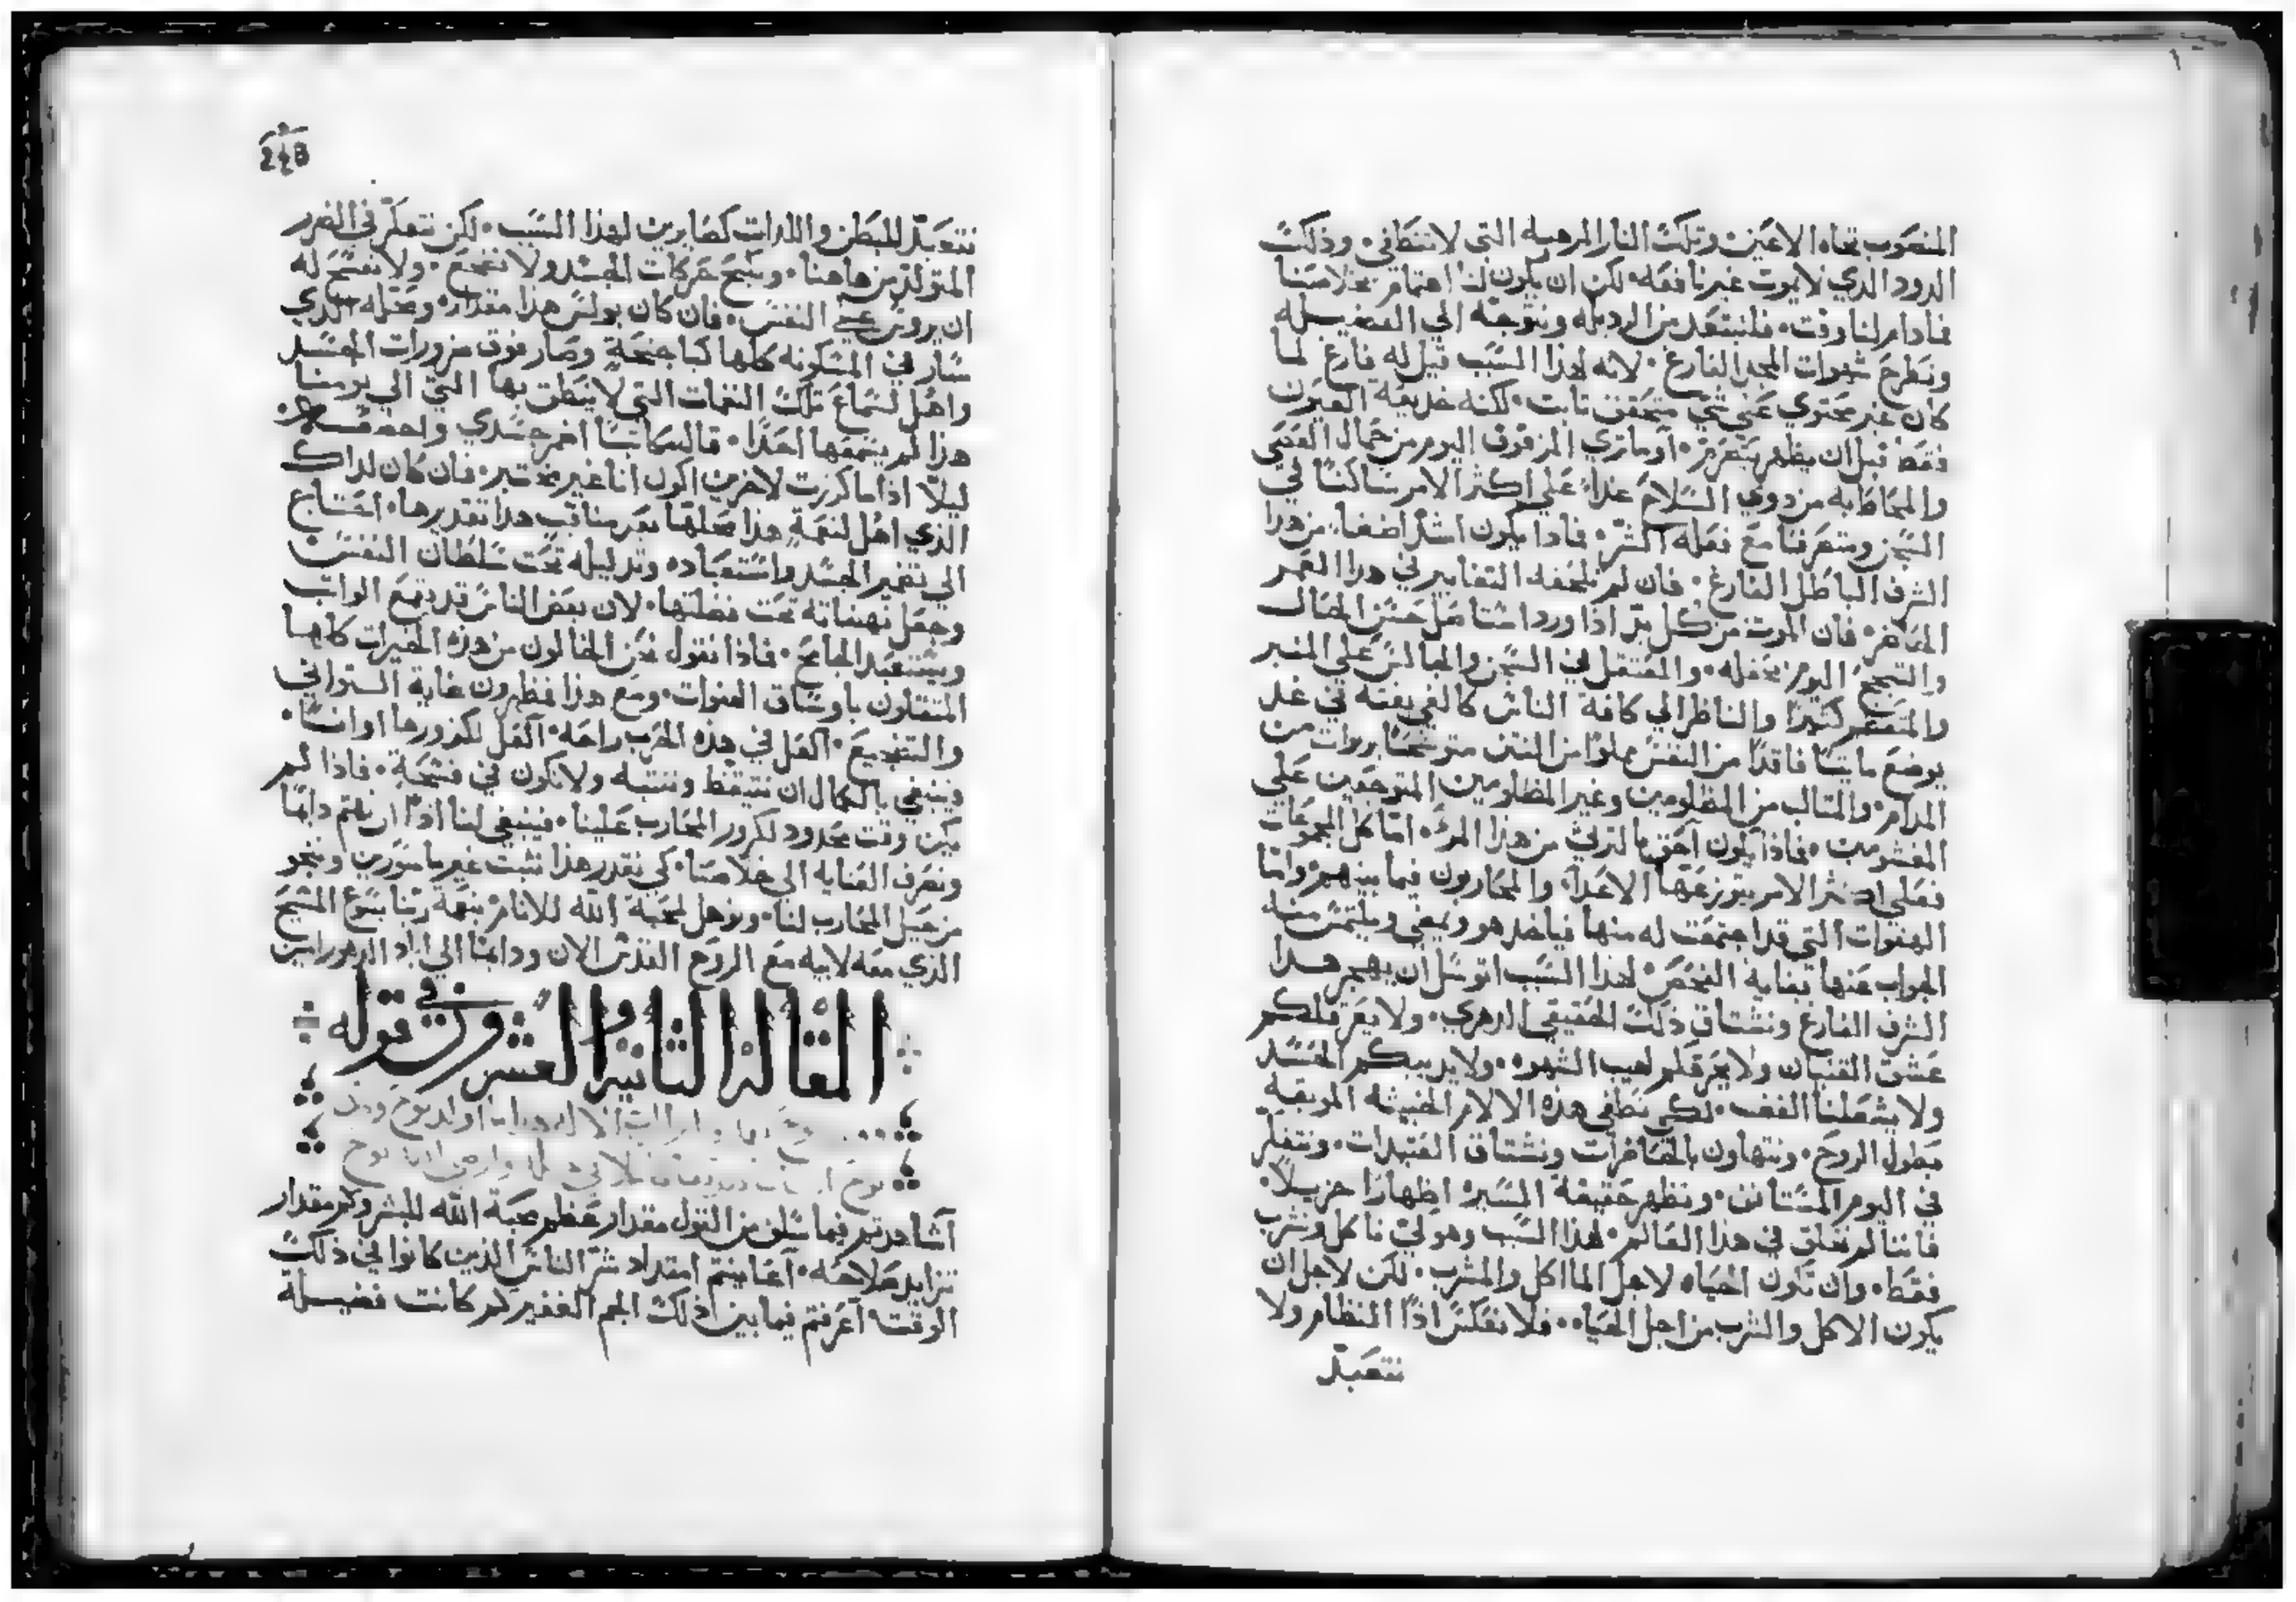 المنصوب تجاه الاعين وتلك النار المرهبه التي لا تنطافي وذلك
الدود الذي لا يموت غير نافعه لكن ان يكون لنا اهتمام بخلاصنا
فمادام لنا وقت فلنبتعد من الرديله ونتوجه الي الفضيله
ونطرح شهوات المجد الفارغ لانه لهذا السبب قيل له فارغ لما
كان غير محتوي عني شي متحقق ثابت لكنه خديعة العيون
فقط قبل ان يظهر يتعرمز اوماتري المزفوف اليوم من حمال العصي
والمحاطابه من دوي السلام غدا علي اكثر الامر ساكنا في
السجن ومتعرفنا مع فعله الشر فمادا يكون اشد اضغفا من هدا
الشرف الباطل الفارغ فان لم تلحقه التغايير في هدا العمر
الحاضر فان الموت من كل بد اذا ورد اشتامل حسن الحال
والتبجح اليوم بمحفله والمعتقل في السجن والجالس علي المنبر
والمتعظم كثيرا والناظر الي كافة الناس كالفي بغتة في غد
يوضع مايتا فاقدا من النفس مملوا من النتن متوشحا بروات من
المدام والمتالب من المظلومين وغير المظلومين المتوجعين علي
المغشومين فماذا يكون احق بالترث من هذا المرء اما كل المجموعات
فعلي اكثر الامر يتوزعها الاعدا والمحاربون فيما بينهم واما
الهفوات التي قد اجتمعت له منها فياخد هو ويمضي ويلتمس منه
الجواب عنها بغاية الفحص لهذا السبب اتوسل ان يهجر هدا
الشرف الفارغ ونشتاق ذلك الحقيقي الدهري ولا يعرقلكم
عشق القنيان ولا يحرقكم لهيب الشهوه ولا يديبكم الحسد
ولا يشعلنا الغضب لكي نطفي هذه الالام الخبيثه المريقه
بطول الروح ونتهاون بالحاضرات ونشتاق العتيدات ونتفكر
في اليوم المستانف ونظهر حقيقة السير اظهارا جزيلا
فاننا لم نخلق في هذا العالم لهذا السبب وهو لكي ناكل ونشرب
فقط وان تكون الحياه لاجل الماكل والمشرب لكن لاجل ان
يكون الاكل والشرب من اجل الحياه فلا نعكس اذا النظام ولا
نتعبد
248
نتعبد للبطن واللدات كصايرين لهذا السبب لكن نتفكر في الضرر
المتولد من هاهنا ونكبح حركات الجسد ولا نضجع ولا نفسح له
ان يروس علي النفس فان كان بولس هدا مقداره ومحله الذي
سار في المسكونه كلها كباجنحة وصار فوق ضرورات الجسد
واهل لسماع تلك النغمات التي لا ينطق بها التي الي يومنا
هذا لم يسمعها احدا قال مكاتبا اضر جسدي واحمقه
ليلا اذا ما كرزت لاخرين اكون انا غير مختبر فان كان لداك
الذي اهل لنعمة هذا محلها بعد مناقب هدا تقديرها احتاج
الي تضمير الجسد واستعباده وتدليله تحت سلطان النفس
وجعل نهضاته تحت فضلتها لان بعض الناس قد يقمع الواتب
ويستعبد الجامح فماذا نقول نحن الخالون من هذه الخيرات كلها
المتقلون باوساق الهفوات ومع هذا فظهرون غاية التواني
والتضجيع العل في هذه الحرب راحه العل لكرورها اوانسا
وينبغي بالكمال ان نتيقظ وننتبه ولا نكون في فسحة فاذا لم
يكن وقت محدود لكرور المحارب علينا فينبغي لنا اذا ان نهتم دايما
ونصرف العنايه الي خلاصنا كي نقدر هذا نثبت غير ماسورين وننجو
من حيل المحارب لنا ونوهل لمحبة الله للانام بنعمة ربنا يسوع المسيح
الذي معه لابيه مع الروح القدس الان ودايما الي اباد الدهور امين
المقالة الثانية والعشرون في قوله
اشاهدتم فيما سلف من القول مقدار عظم محبة الله للبشر وكم مقدار
تزايد صلاحه اعاينتم امتداد شر الناس الذين كانوا في ذلك
الوقت اعرفتم فيما بين اذلك الجم الغفير كم كانت فضيلة